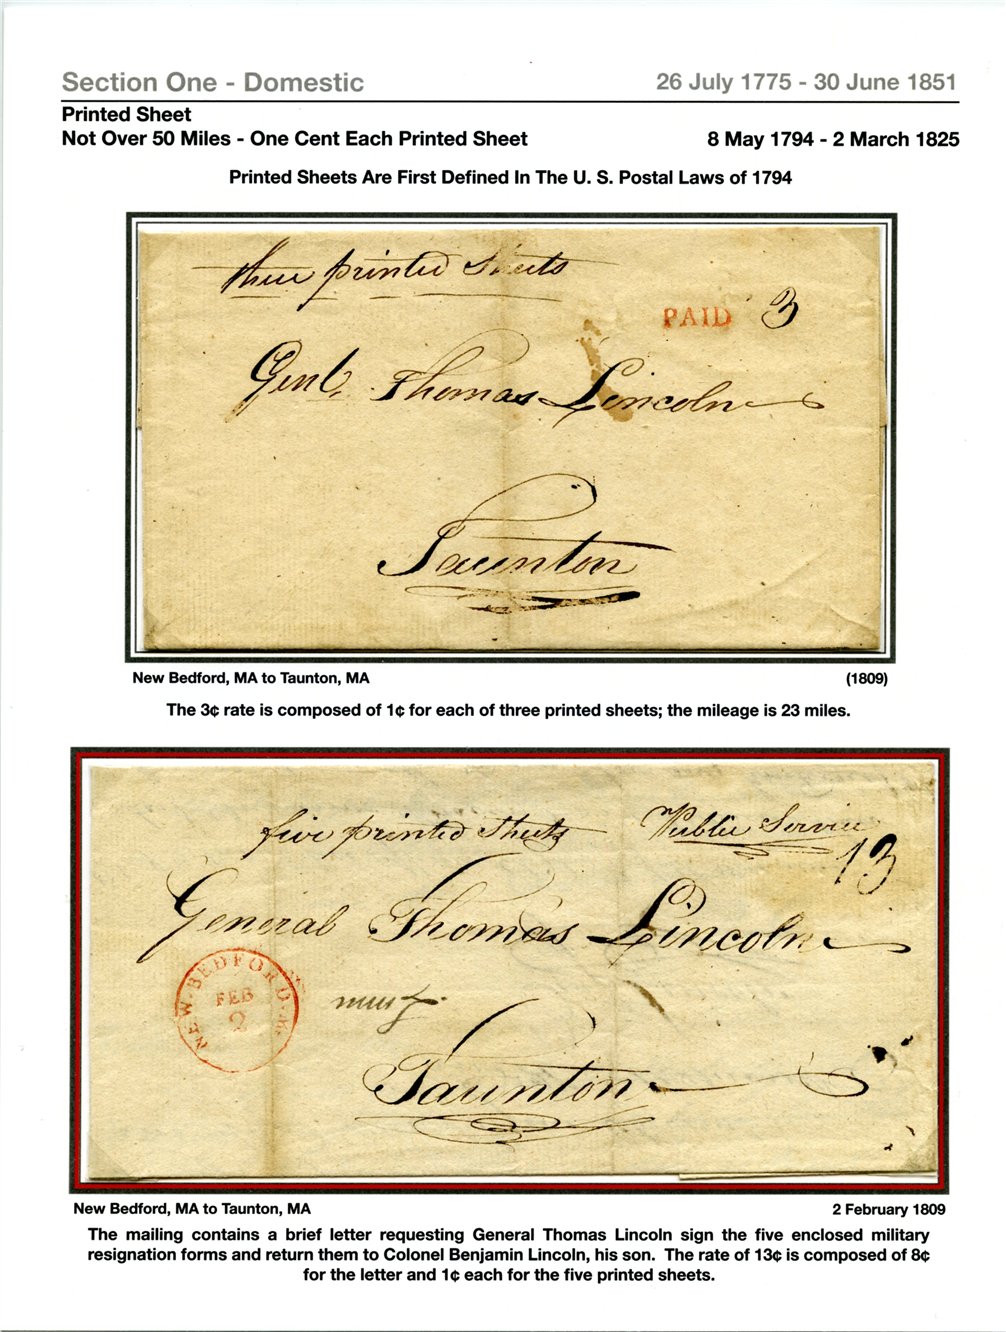 Section One - Domestic 26 July 1775 - 30 June 1851
Printed Sheet
Not Over 50 Miles - One Cent Each Printed Sheet 8 May 1794 - 2 March 1825
Printed Sheets Are First Defined In The U. S. Postal Laws of 1794
three printed Sheets
PAID 3
Genl. Thomas Lincoln
Taunton
New Bedford, MA to Taunton, MA (1809)
The 3¢ rate is composed of 1¢ for each of three printed sheets; the mileage is 23 miles.
five printed Sheets Public Service
13
General Thomas Lincoln
NEW-BEDFORD. M
FEB
2
Taunton
New Bedford, MA to Taunton, MA 2 February 1809
The mailing contains a brief letter requesting General Thomas Lincoln sign the five enclosed military
resignation forms and return them to Colonel Benjamin Lincoln, his son. The rate of 13¢ is composed of 8¢
for the letter and 1¢ each for the five printed sheets.